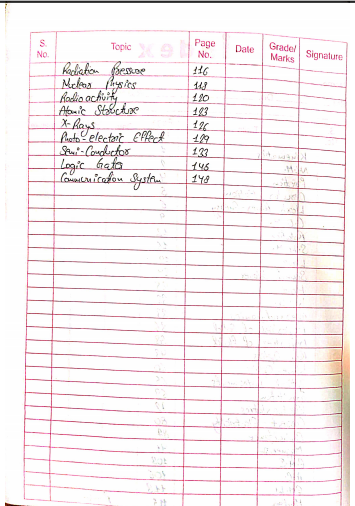 S. No. Topic Page No. Date Grade/ Marks Signature
Radiation Pressure 116
Nuclear Physics 118
Radioactivity 120
Atomic Structure 123
X-Rays 126
Photo-electric Effect 129
Semi-Conductor 133
Logic Gates 146
Communication System 148